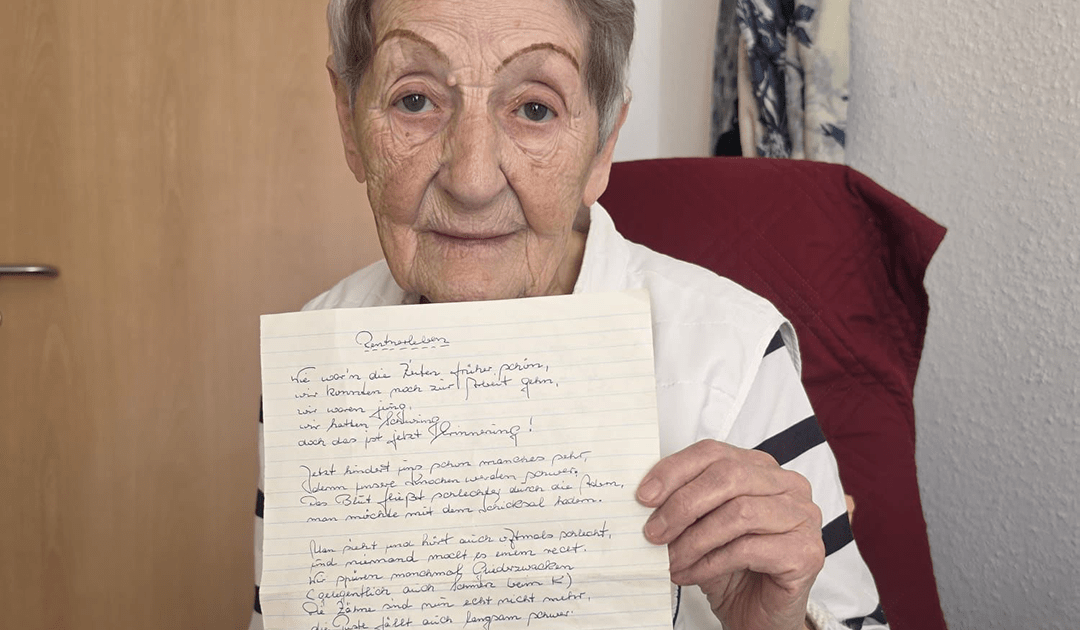 Rentnerleben
Wie war'n die Zeiten früher schön,
wir konnten noch zur Arbeit gehn,
wir waren jung,
wir hatten Schwung
doch das ist jetzt Erinnerung!
Jetzt hindert uns schon manches sehr,
denn unsere Knochen werden schwer.
Das Blut fließt schlechter durch die Adern,
man möchte mit dem Schicksal hadern.
Man sieht und hört auch oftmals schlecht,
und niemand macht es einem recht.
Wir spüren manchmal Gliederzwacken
(gelegentlich auch Schmerz beim K)
Die Zähne sind nun echt nicht mehr,
die Puste fällt auch langsam schwer.